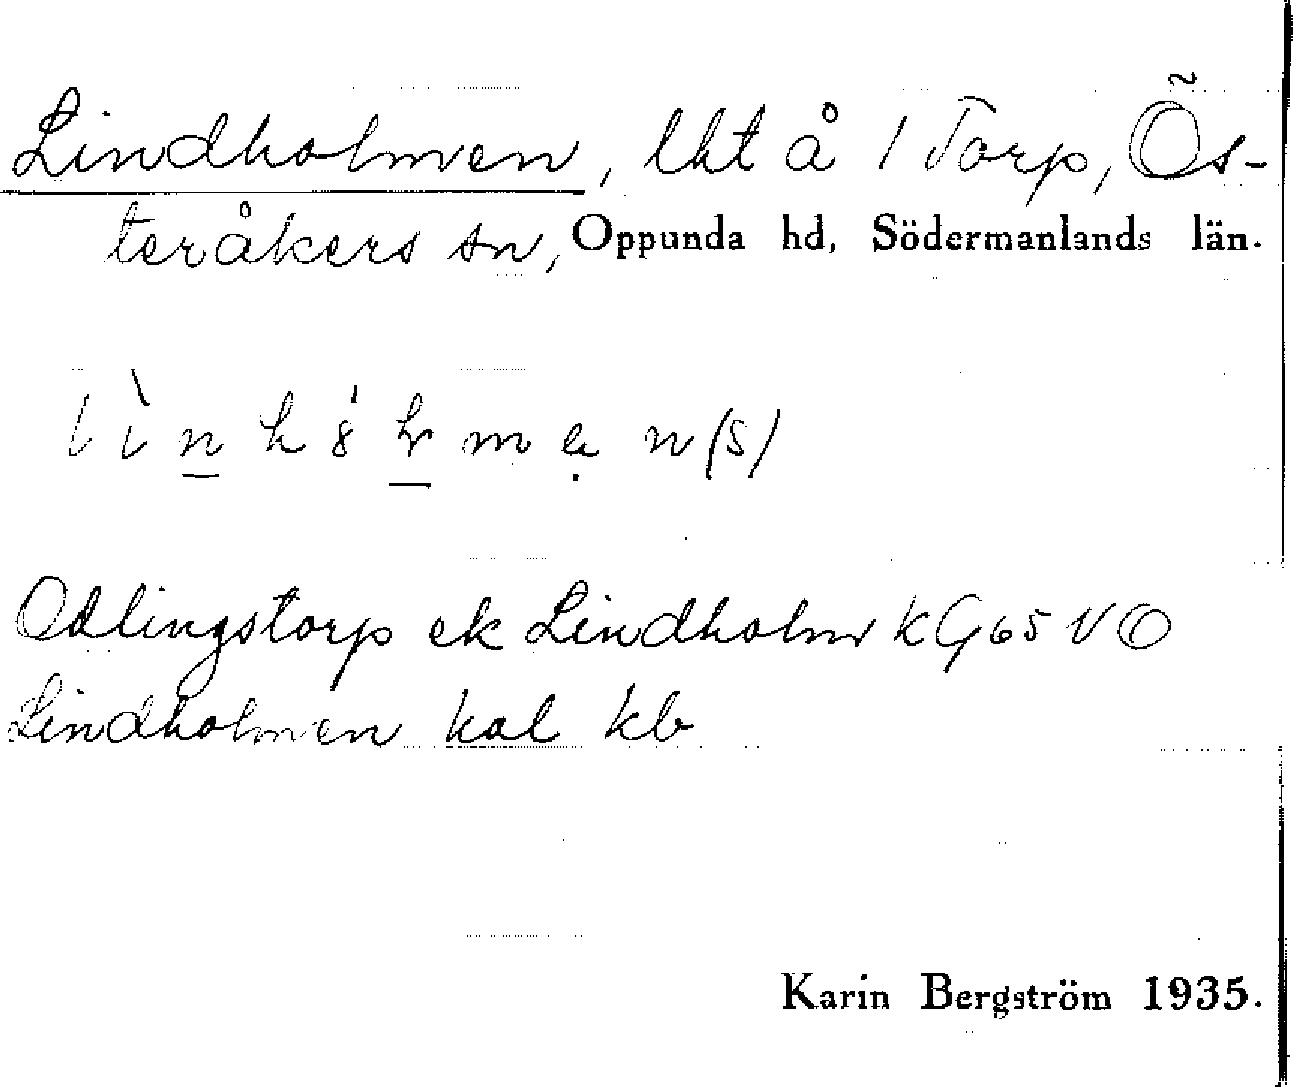 Lindholmen, lht å 1 Torp, Ös-
teråkers sn, Oppunda hd, Södermanlands län.
n (s)
Odlingstorp ek Lindholm KG65 VO
Lindholmen kal kb
Karin Bergström 1935.